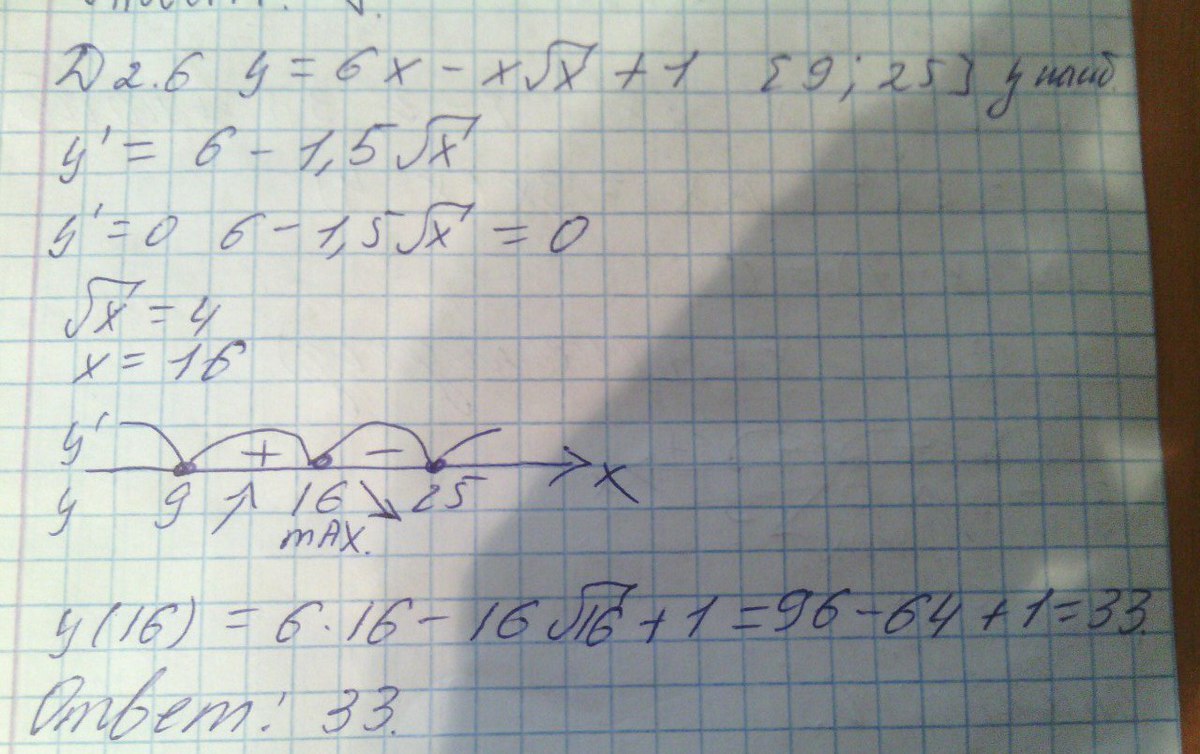 Д 2.6 y = 6x - x√x + 1 [9; 25] y наиб.
y' = 6 - 1,5√x
y' = 0 6 - 1,5√x = 0
√x = 4
x = 16
y' + -
x
y 9 ↗ 16 ↘ 25
max.
y(16) = 6·16 - 16√16 + 1 = 96 - 64 + 1 = 33.
Ответ: 33.